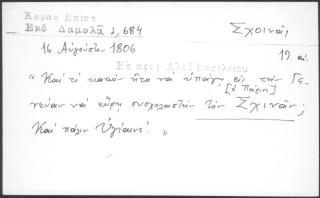 Κοραη Επιστ
Εκδ Δαμαλᾶ 2, 684
Σχοινᾶς
16 Αὐγούστου 1806
19. αἰ.
Ἐπ πρὸς Ἀλεξ Βασιλείου
" Καὶ τί κακὸν ἦτο νὰ ὑπάγῃ εἰς τὴν Γε-
[ὁ Πάρις]
νεύαν νὰ εὕρῃ συσχολαστὴν τὸν Σχινᾶν;
Καὶ πάλιν Ὑγίαινε! "